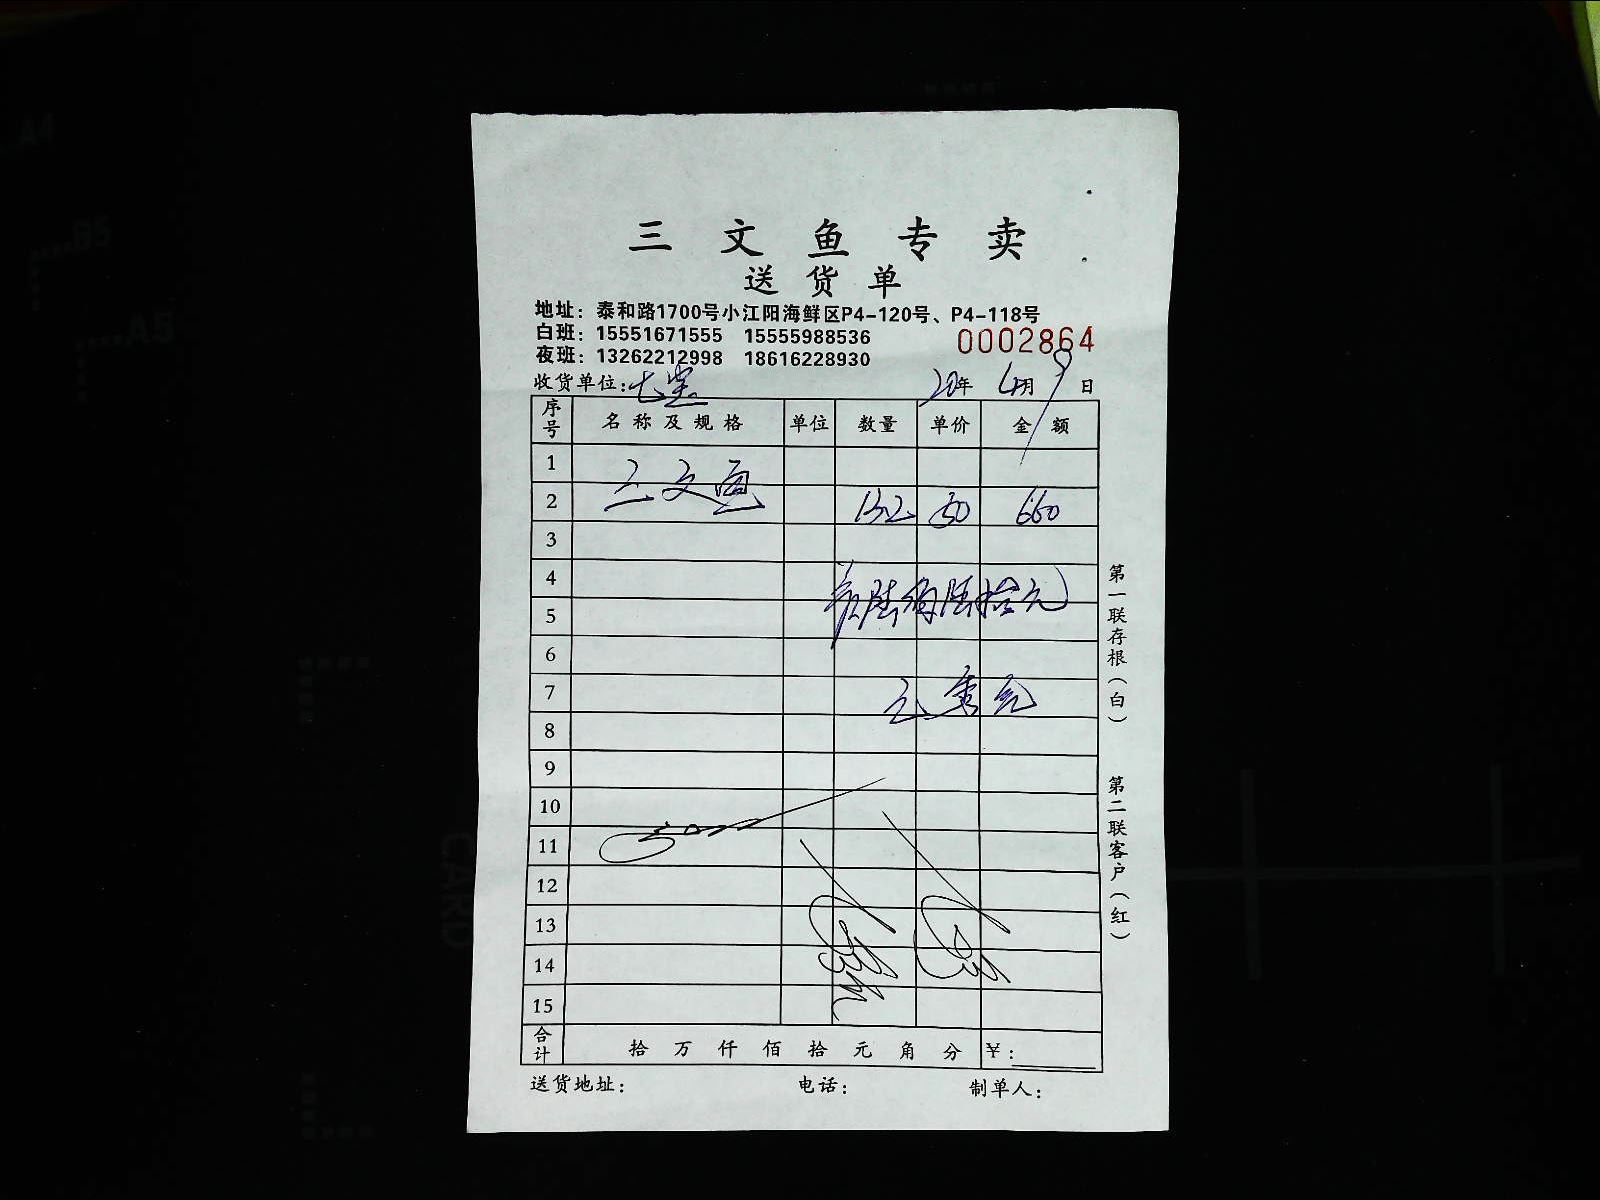 三文鱼专卖
送货单
地址：泰和路1700号小江阳海鲜区P4-120号、P4-118号
白班：15551671555 15555988536
夜班：13262212998 18616228930
0002864
收货单位：七宝 20年 4月 9日
序号 名称及规格 单位 数量 单价 金额
1
2 三文鱼 13.2 50 660
3
4
陆佰陆拾元
5
6
7
8
9
10
11
12
13
14
15
合计 拾 万 仟 佰 拾 元 角 分 ￥：
送货地址： 电话： 制单人：
第一联存根（白）
第二联客户（红）
A4
B5
A5
CARD